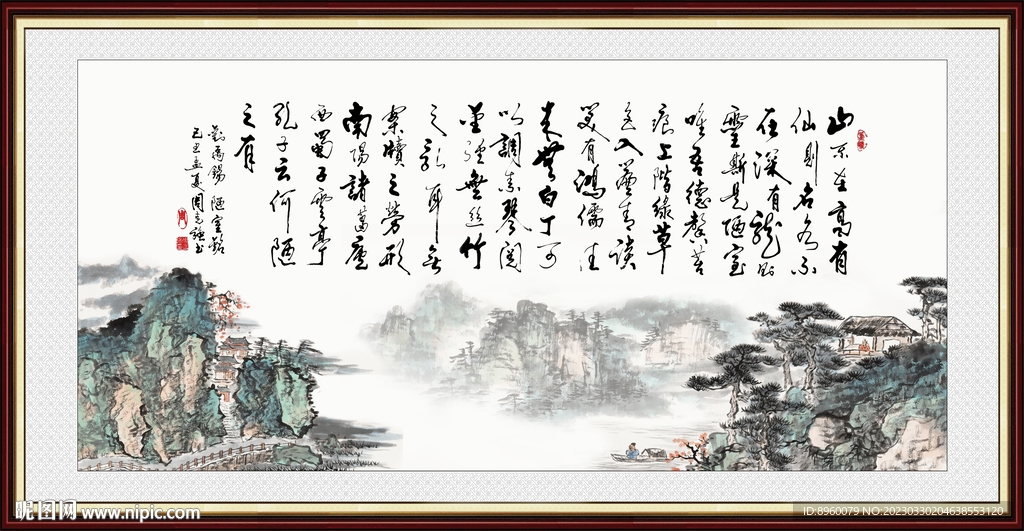 山不在高有
仙則名水不
在深有龍則
靈斯是陋室
唯吾德馨苔
痕上階綠草
色入簾青談
笑有鴻儒往
來無白丁可
以調素琴閱
金經無絲竹
之亂耳無
案牘之勞形
南陽諸葛廬
西蜀子雲亭
孔子云何陋
之有
劉禹錫 陋室銘
孟夏周志強書
昵图网 www.nipic.com
ID:8960079 NO:20230330204638553120